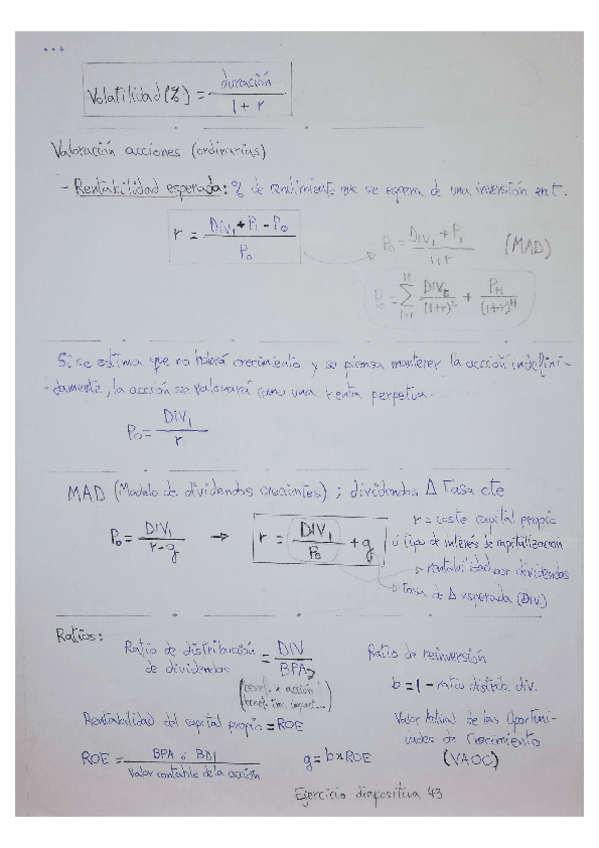 ...
Volatilidad (%) = duración / 1 + r
Valoración acciones (ordinarias)
- Rentabilidad esperada: % de rendimiento que se espera de una inversión en t.
r = Div₁ + P₁ - P₀ / P₀
P₀ = Div₁ + P₁ / 1+r (MAD)
P₀ = Σ DIVt / (1+r)^t + PH / (1+r)^H
Si se estima que no habrá crecimiento y se piensa mantener la acción indefini-
damente, la acción se valorará como una renta perpetua.
P₀ = DIV₁ / r
MAD (Modelo de dividendos crecientes) ; dividendos Δ Tasa cte
P₀ = DIV₁ / r-g → r = DIV₁ / P₀ + g
r = coste capital propio
ó tipo de interés de capitalización
rentabilidad por dividendos
Tasa de Δ esperada (Div)
Ratios:
Ratio de distribución de dividendos = DIV / BPA
(benef. x acción
Ratio de reinversión
b = 1 - ratio distrib. div.
Rentabilidad del capital propio = ROE
Valor Actual de las Oportuni-
dades de Crecimiento
(VAOC)
ROE = BPA ó BDI / Valor contable de la acción
g = b x ROE
Ejercicio diapositiva 43